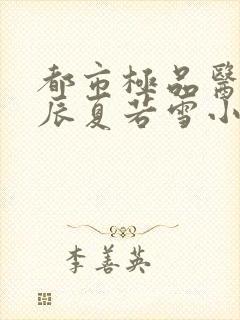 都市極品醫
辰夏若雪小
李善英